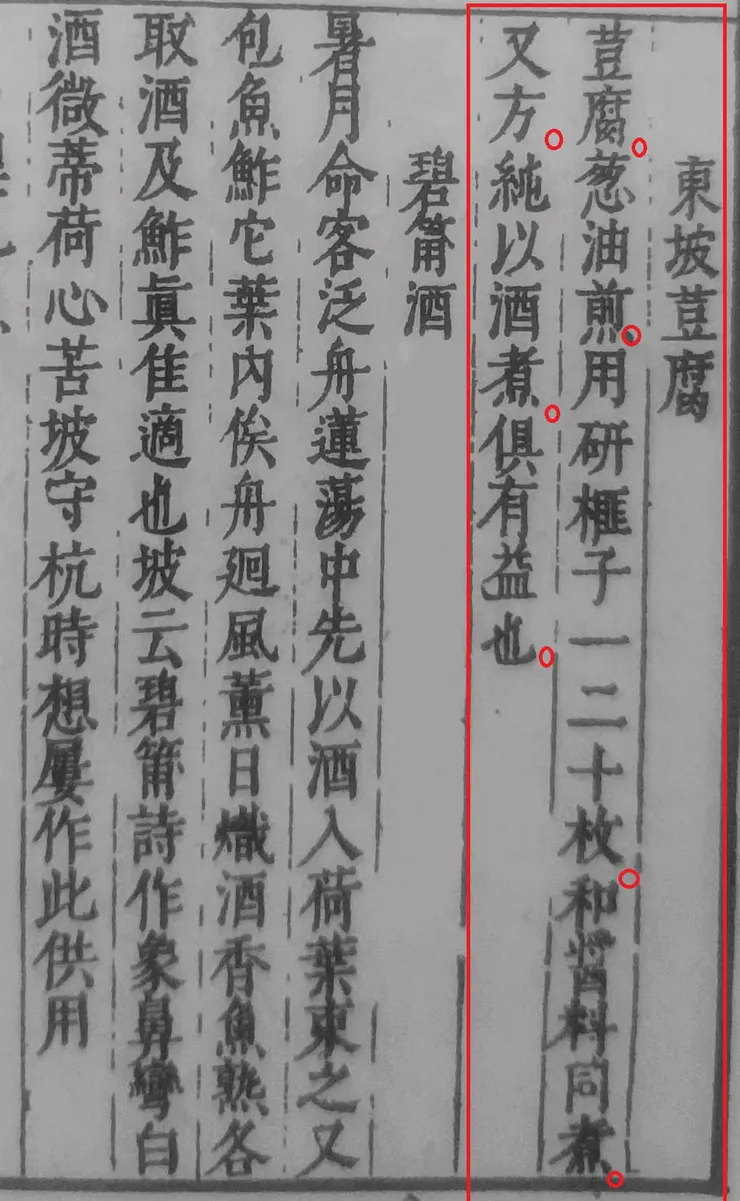 東坡荳腐
荳腐葱油煎用研榧子一二十枚和醬料同煮
又方純以酒煮俱有益也
碧筩酒
暑月命客泛舟蓮蕩中先以酒入荷葉束之又
包魚鮓它葉內俟舟廻風薰日熾酒香魚熟各
取酒及鮓眞佳適也坡云碧筩詩作象鼻彎白
酒微蒂荷心苦坡守杭時想屢作此供用